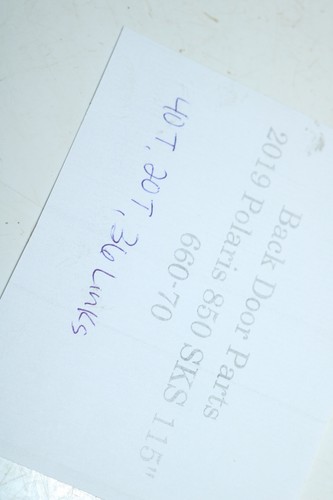 Back Door Parts
2019 Polaris 850 SKS 115"
660-70
40T, 20T, 36 LINKS